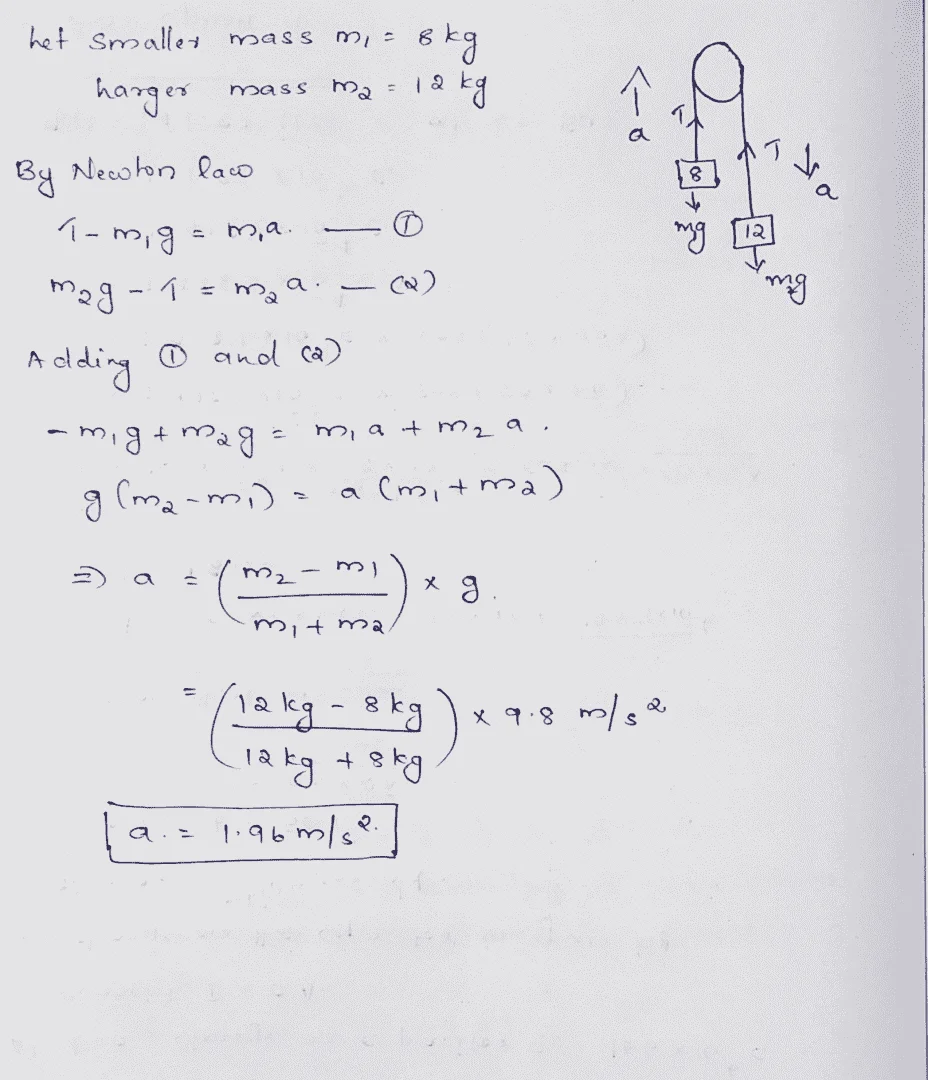 Let smaller mass m₁ = 8 kg
Larger mass m₂ = 12 kg
By Newton law
T - m₁g = m₁a. — ①
m₂g - T = m₂a. — (2)
Adding ① and (2)
- m₁g + m₂g = m₁a + m₂a.
g (m₂ - m₁) = a (m₁ + m₂)
⇒ a = (m₂ - m₁ / m₁ + m₂) x g.
= (12 kg - 8 kg / 12 kg + 8 kg) x 9.8 m/s²
a. = 1.96 m/s².
a
T
T
a
8
mg
12
m₂g